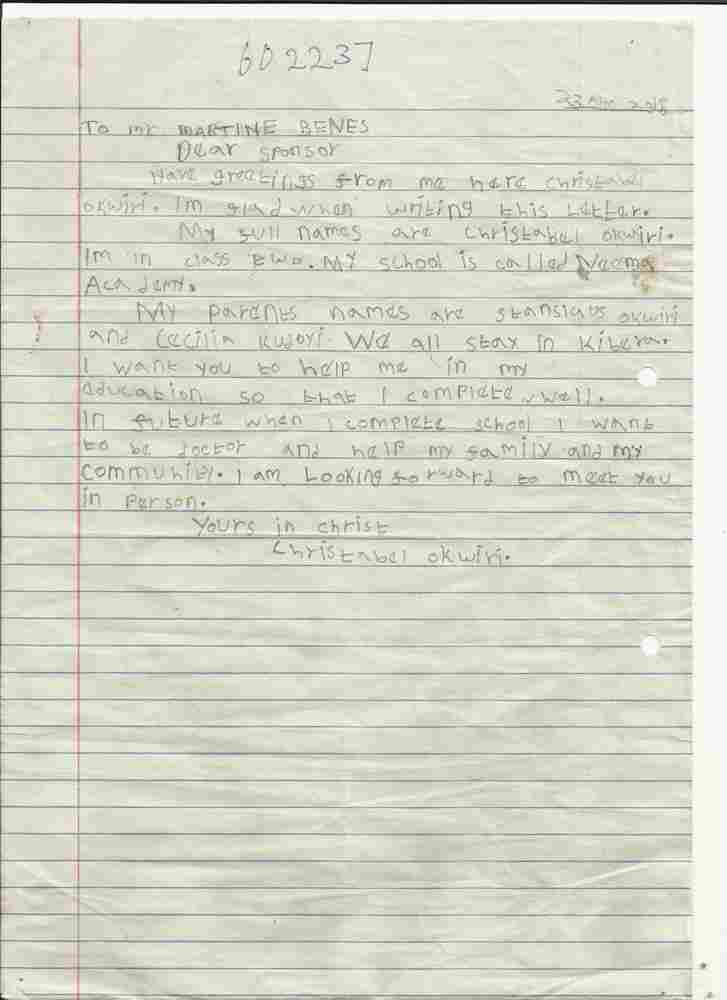 602237
To mr MARTINE BENES
Dear sponsor
Have greetings from me here christabel
okwiri. Im glad when writing this letter.
My full names are christabel okwiri.
Im in class two. My school is called Neema
Academy.
My parents names are stanslaus okwiri
and Cecilia We all stay in Kibera.
I want you to help me in my
education so that I complete well.
In future when I complete school I want
to be doctor and help my family and my
community. I am Looking forward to meet you
in person.
Yours in christ
Christabel okwiri.